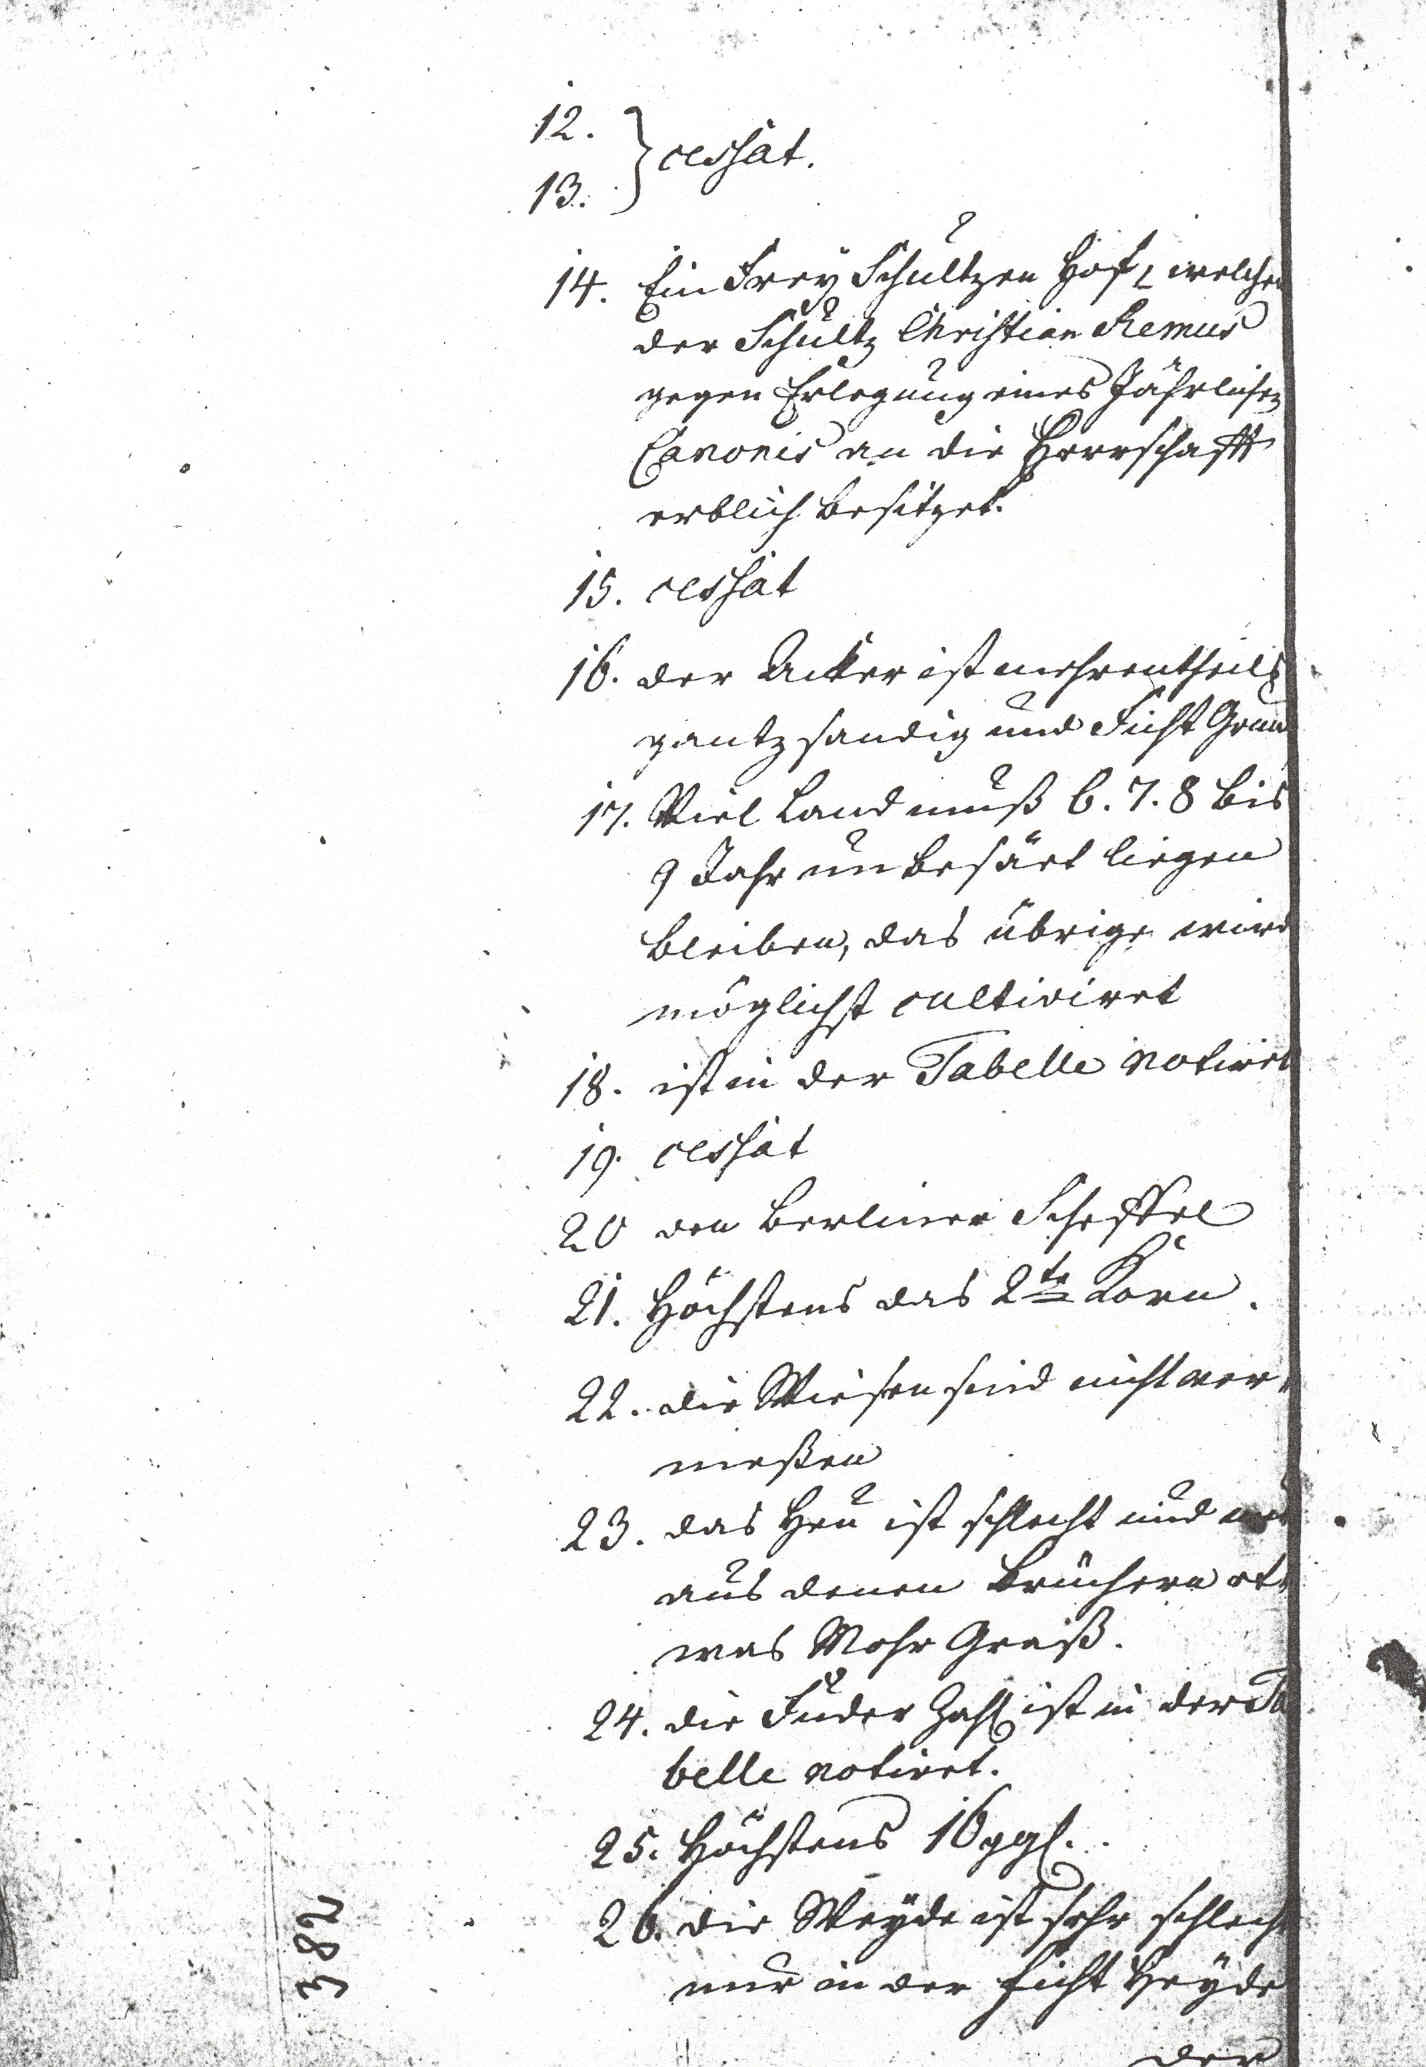 12.
13. } cessat.
14. Ein Frey Schultzen Hof, welchen
der Schultz Christian Remus
gegen Erlegung eines Jährlichen
Canonis an die Herrschafft
erblich besitzet.
15. cessat
16. der Acker ist mehrentheils
gantz sandig und Ficht Grund
17. Viel Land muß 6. 7. 8 bis
9 Jahr unbesäet liegen
bleiben, das übrige wird
möglichst cultiviret
18. ist in der Tabelle notiret
19. cessat
20 den Berliner Scheffel
21. Höchstens das 2te Korn.
22. die Wiesen sind nicht ver-
meßen
23. das Heu ist schlecht und
aus denen Brüchern et-
was Mohr Graiß.
24. die Fuder Zahl ist in der Ta
belle notiret.
25. Höchstens 16 ggl.
26. die Weyde ist sehr schlecht
nur in der ficht Heyde
der
382